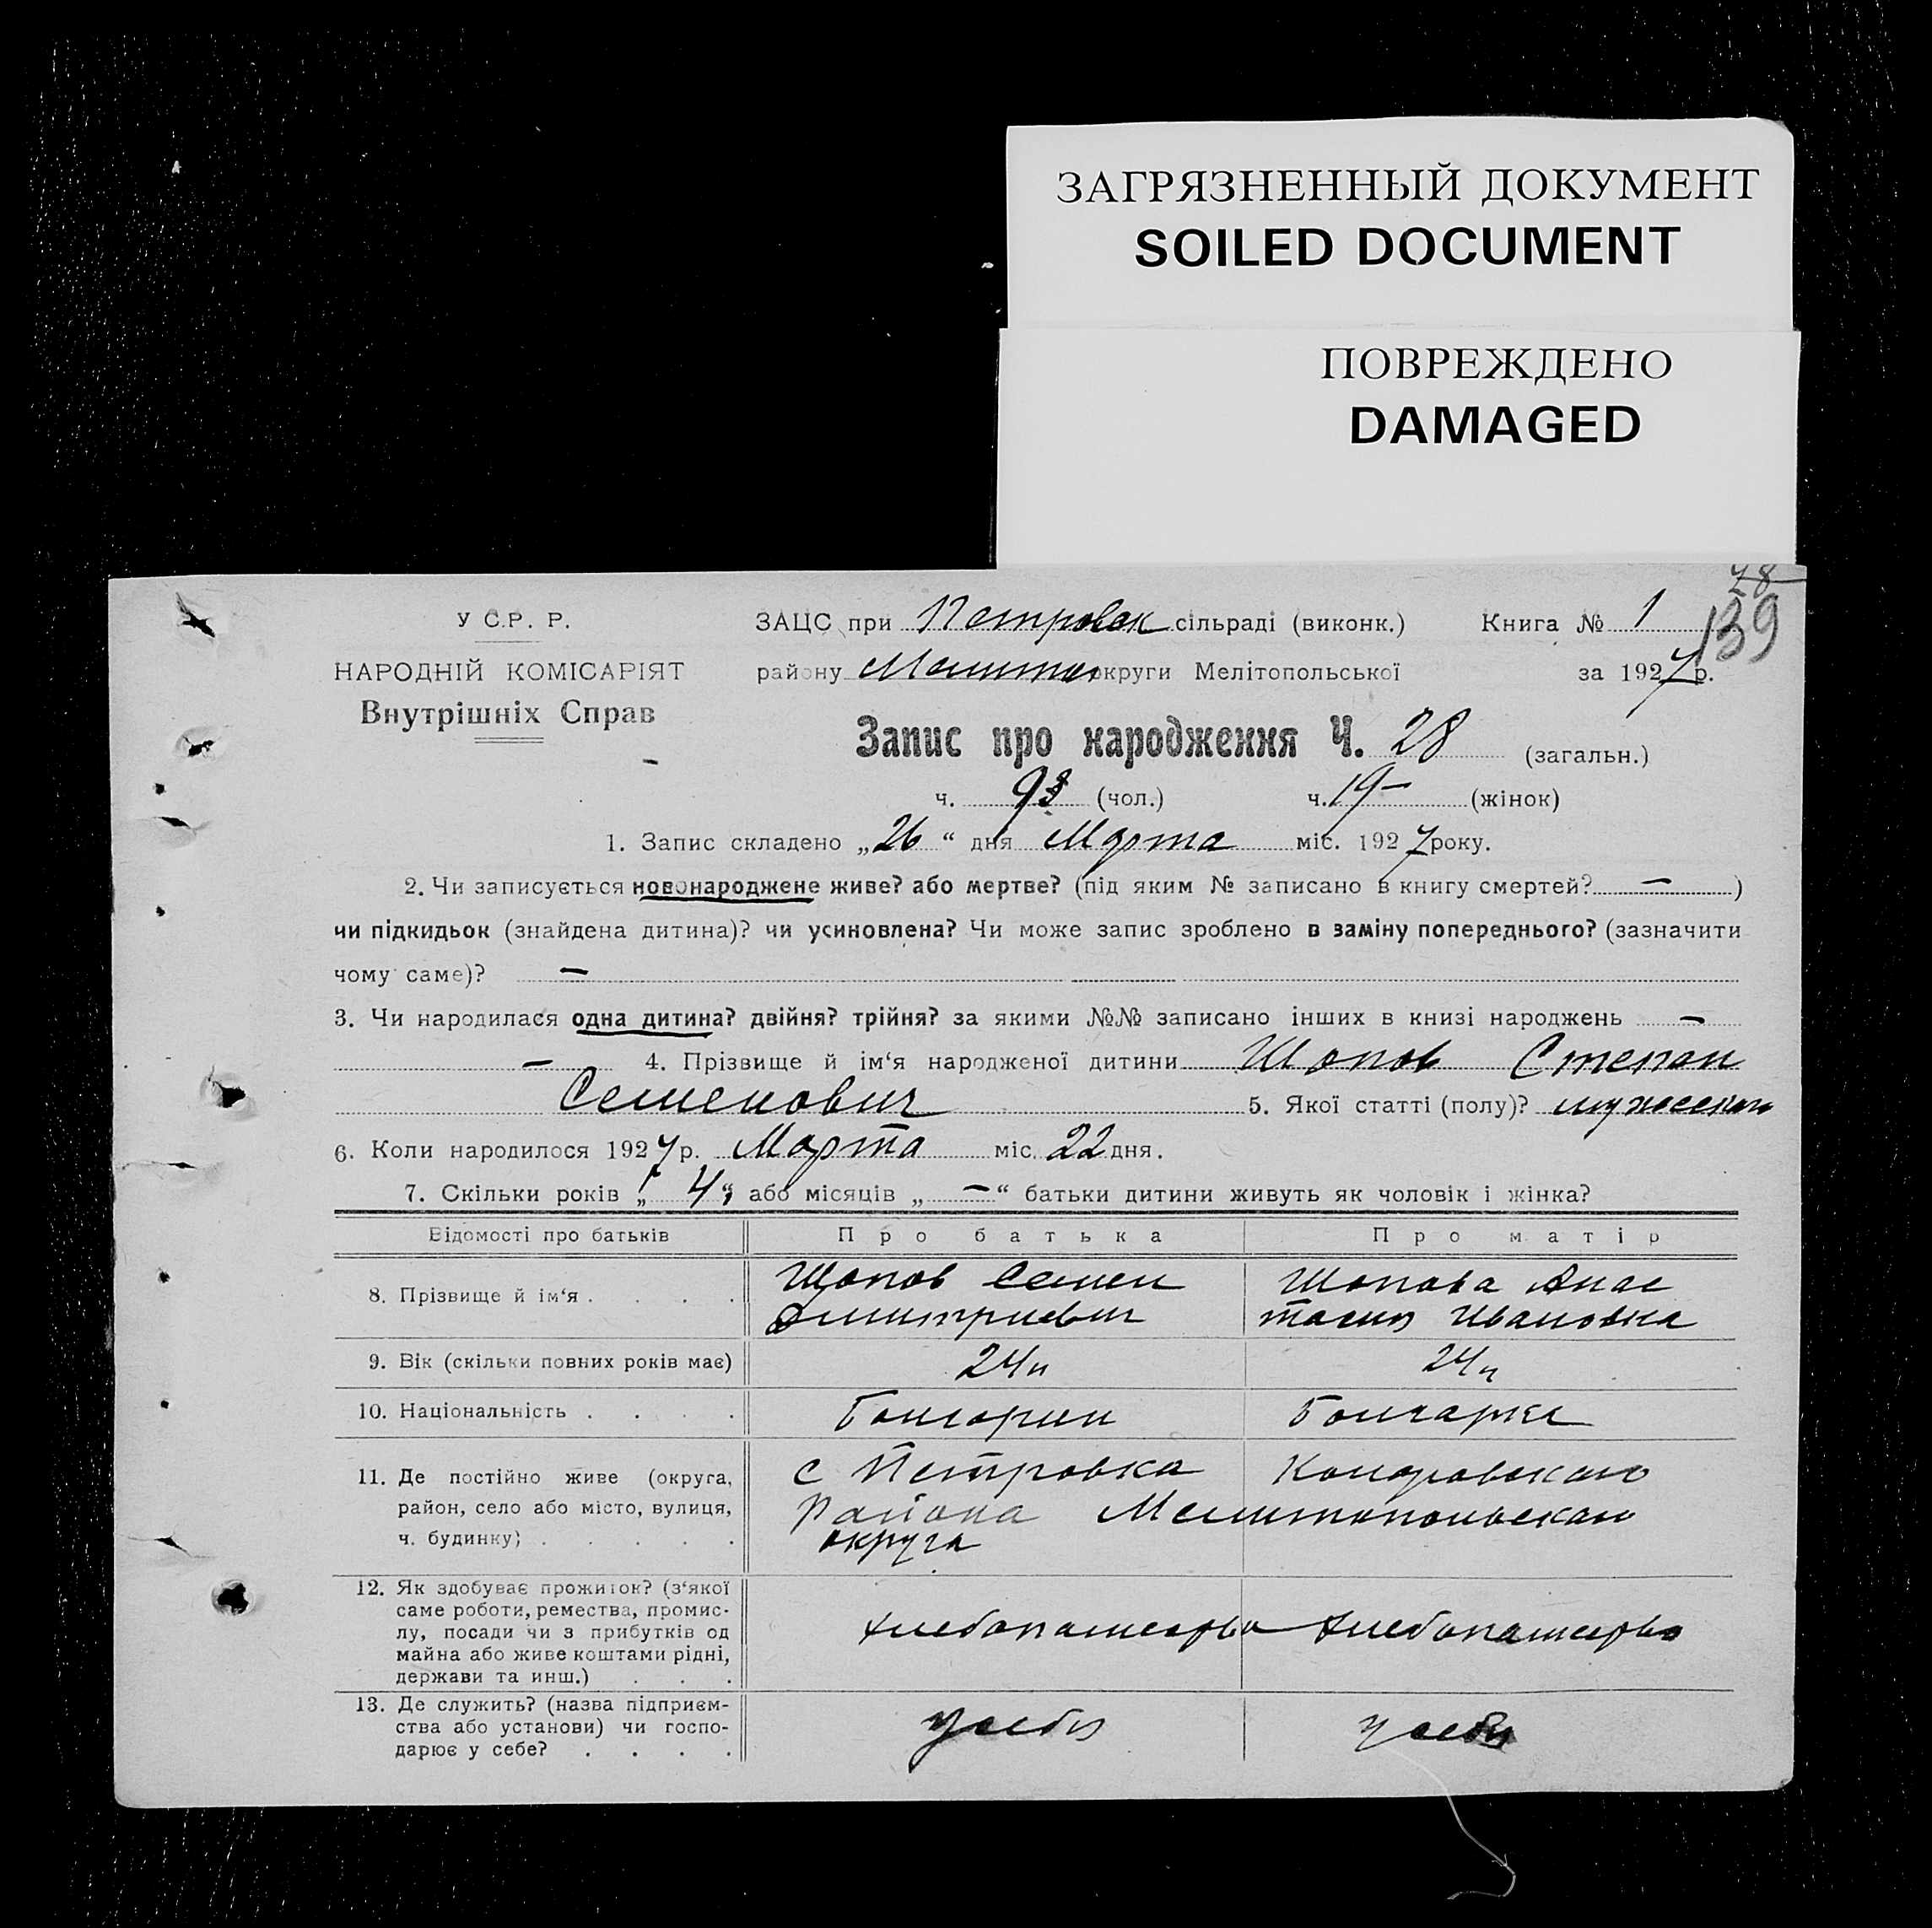 ЗАГРЯЗНЕННЫЙ ДОКУМЕНТ
SOILED DOCUMENT
ПОВРЕЖДЕНО
DAMAGED
78
139
У С.Р. Р.
ЗАЦС при Петровск сільраді (виконк.) Книга № 1
НАРОДНІЙ КОМІСАРІЯТ
району округи Мелітопольської за 1927 р.
Внутрішніх Справ
Запис про народження Ч. 28 (загальн.)
ч. 9 (чол.) ч. 19 – (жінок)
1. Запис складено „26“ дня Марта міс. 1927 року.
2. Чи записується новонароджене живе? або мертве? (під яким № записано в книгу смертей? – )
чи підкидьок (знайдена дитина)? чи усиновлена? Чи може запис зроблено в заміну попереднього? (зазначити
чому саме)? –
3. Чи народилася одна дитина? двійня? трійня? за якими №№ записано інших в книзі народжень –
– 4. Прізвище й ім‘я народженої дитини Шопов Степан
Семенович 5. Якої статті (полу)? мужеского
6. Коли народилося 1927 р. Марта міс. 22 дня.
7. Скільки років „4“ або місяців „–“ батьки дитини живуть як чоловік і жінка?
Відомості про батьків Про батька Про матір
8. Прізвище й ім‘я . . . . Шопов Семен Шопова Анас
Димитриевич тасия Ивановна
9. Вік (скільки повних років має) 24 24
10. Національність . . . . Болгарин Болгарка
11. Де постійно живе (округа, с Петровка
район, село або місто, вулиця, района Мелитопольскаго
ч. будинку) . . . . . округа
12. Як здобуває прожиток? (з‘якої
саме роботи, ремества, промис-
лу, посади чи з прибутків од хлебопашество хлебопашество
майна або живе коштами рідні,
держави та инш.) . . .
13. Де служить? (назва підприєм-
ства або установи) чи госпо- у себя у себя
дарює у себе? . . . .